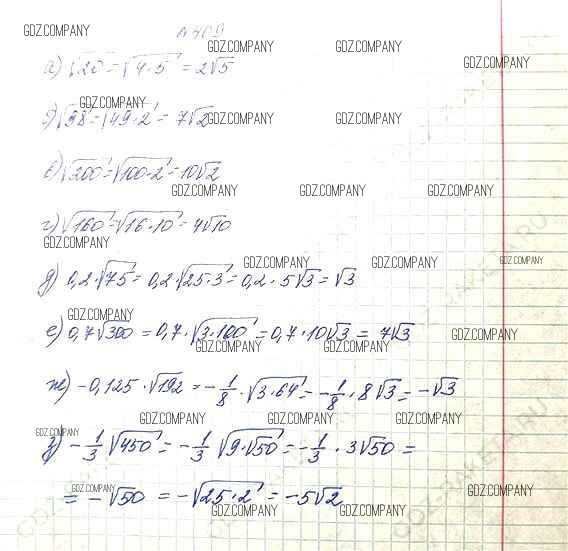 GDZ.COMPANY
№ 409
GDZ.COMPANY GDZ.COMPANY
а) √20 = √4·5 = 2√5 GDZ.COMPANY
GDZ.COMPANY
б) √98 = √49·2 = 7√2 GDZ.COMPANY GDZ.COMPANY
в) √200 = √100·2 = 10√2
GDZ.COMPANY GDZ.COMPANY GDZ.COMPANY
г) √160 = √16·10 = 4√10
GDZ.COMPANY
GDZ.COMPANY GDZ.COMPANY GDZ.COMPANY
д) 0,2·√75 = 0,2·√25·3 = 0,2·5√3 = √3
GDZ.COMPANY
е) 0,7√300 = 0,7·√3·100 = 0,7·10√3 = 7√3 GDZ.COMPANY
GDZ.COMPANY GDZ.COMPANY
ж) -0,125·√192 = -1/8·√3·64 = -1/8·8√3 = -√3
GDZ.COMPANY GDZ.COMPANY GDZ.COMPANY
GDZ.COMPANY
з) -1/3 √450 = -1/3 √9·√50 = -1/3·3√50 =
GDZ.COMPANY GDZ.COMPANY
= -√50 = -√25·2 = -5√2
GDZ.COMPANY GDZ.COMPANY